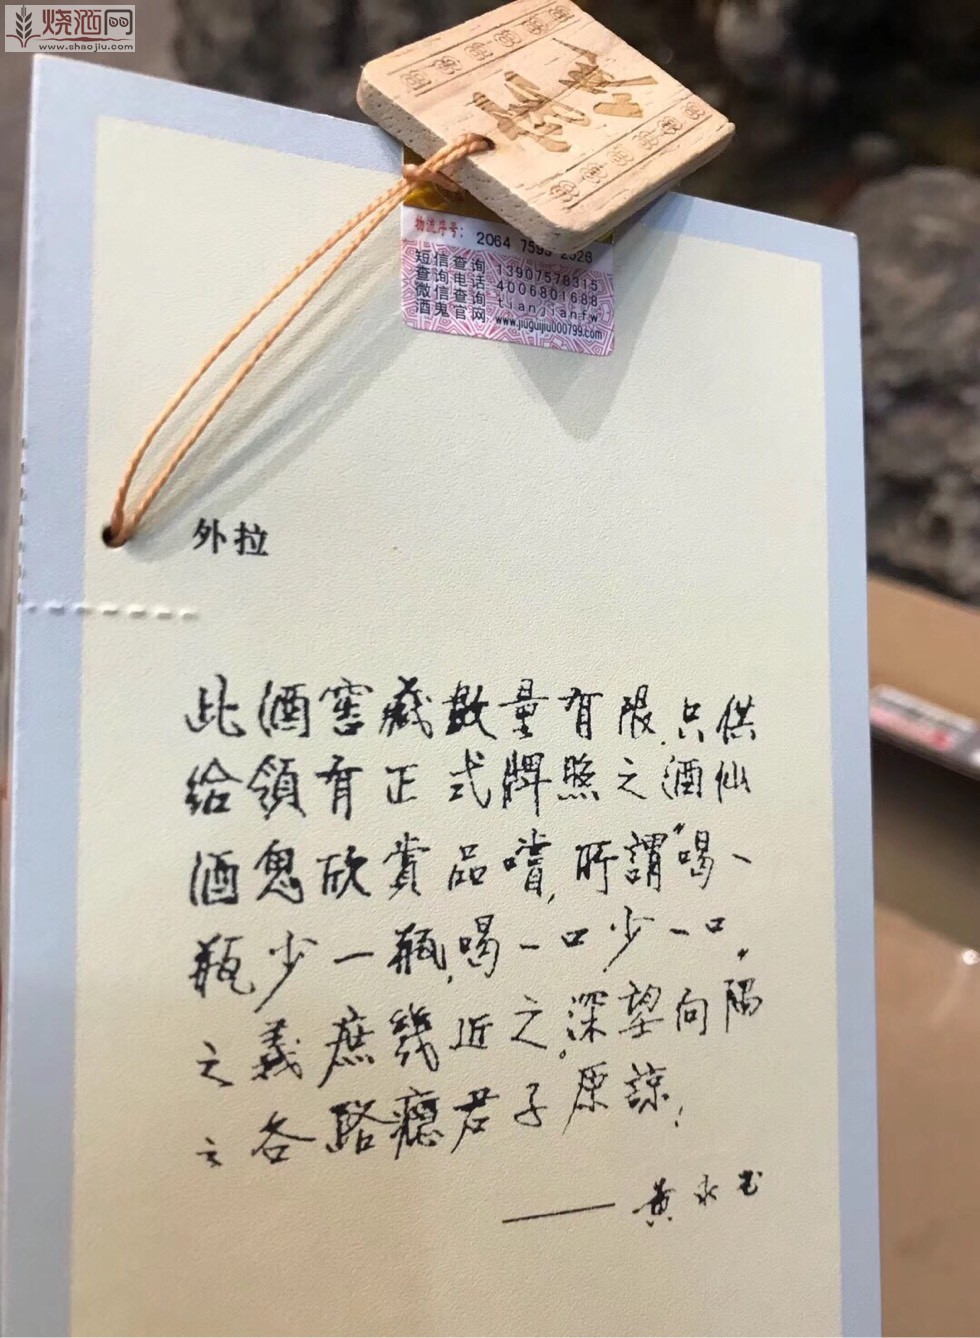 烧酒网
www.shaojiu.com
物流序号: 2064 7593 2526
短信查询 13907578315
查询电话 4006801688
微信查询 tianjianfw
酒鬼官网 www.jiuguijiu000799.com
外拉
此酒窖藏數量有限,只供
给領有正式牌照之酒仙
酒鬼欣赏品嚐,所謂“喝一
瓶少一瓶,喝一口少一口”
之義庶幾近之。深望向隅
之各路癮君子原諒!
——黄永玉